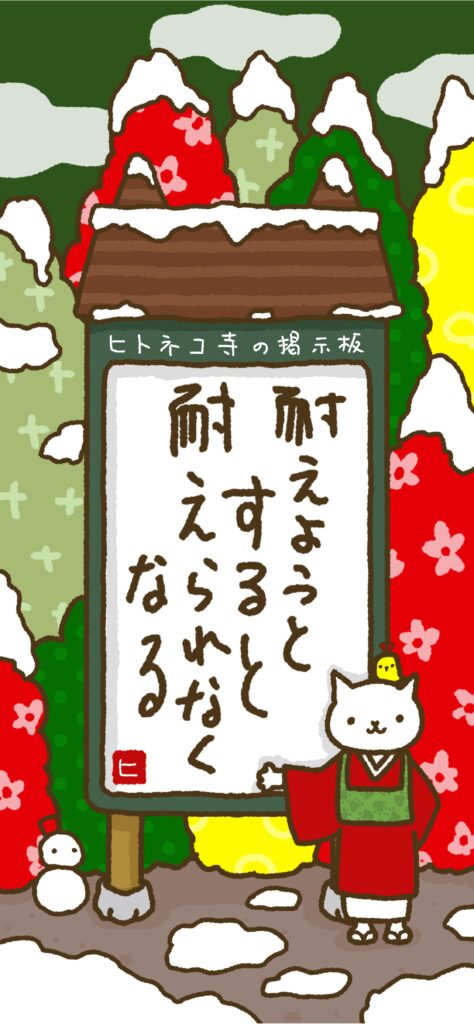 ヒトネコ寺の掲示板
耐えようと
すると
耐えられなく
なる
ヒ